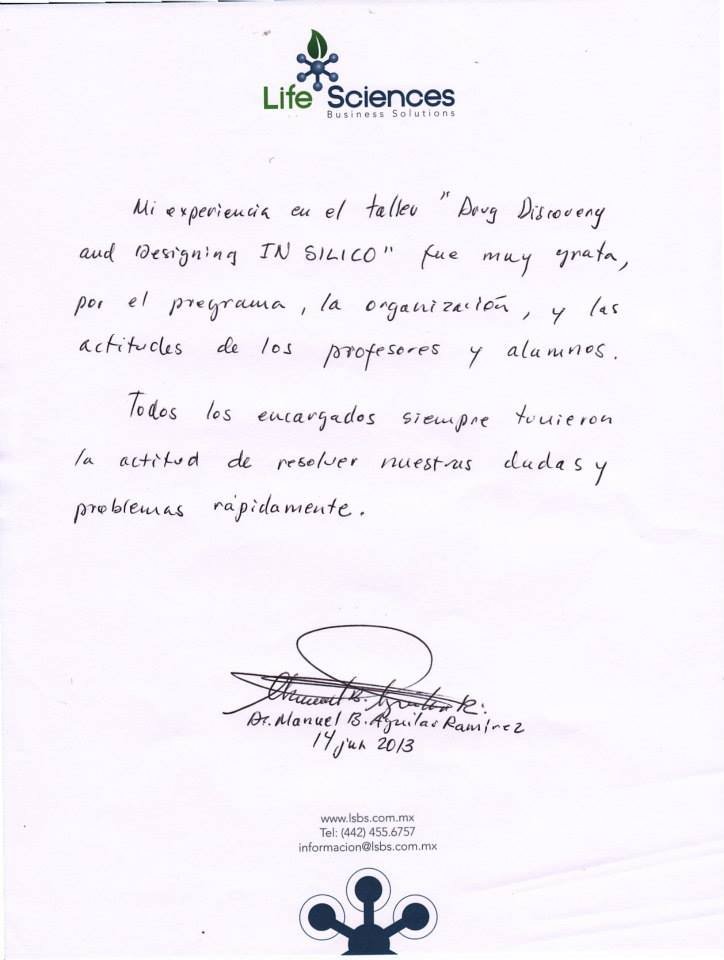 Life Sciences
Business Solutions
Mi experiencia en el taller "Drug Discovery
and Designing IN SILICO" fue muy grata,
por el programa, la organización, y las
actitudes de los profesores y alumnos.
Todos los encargados siempre tuvieron
la actitud de resolver nuestras dudas y
problemas rápidamente.
Manuel B. Aguilar R.
Dr. Manuel B. Aguilar Ramírez
14 jun 2013
www.lsbs.com.mx
Tel: (442) 455.6757
informacion@lsbs.com.mx